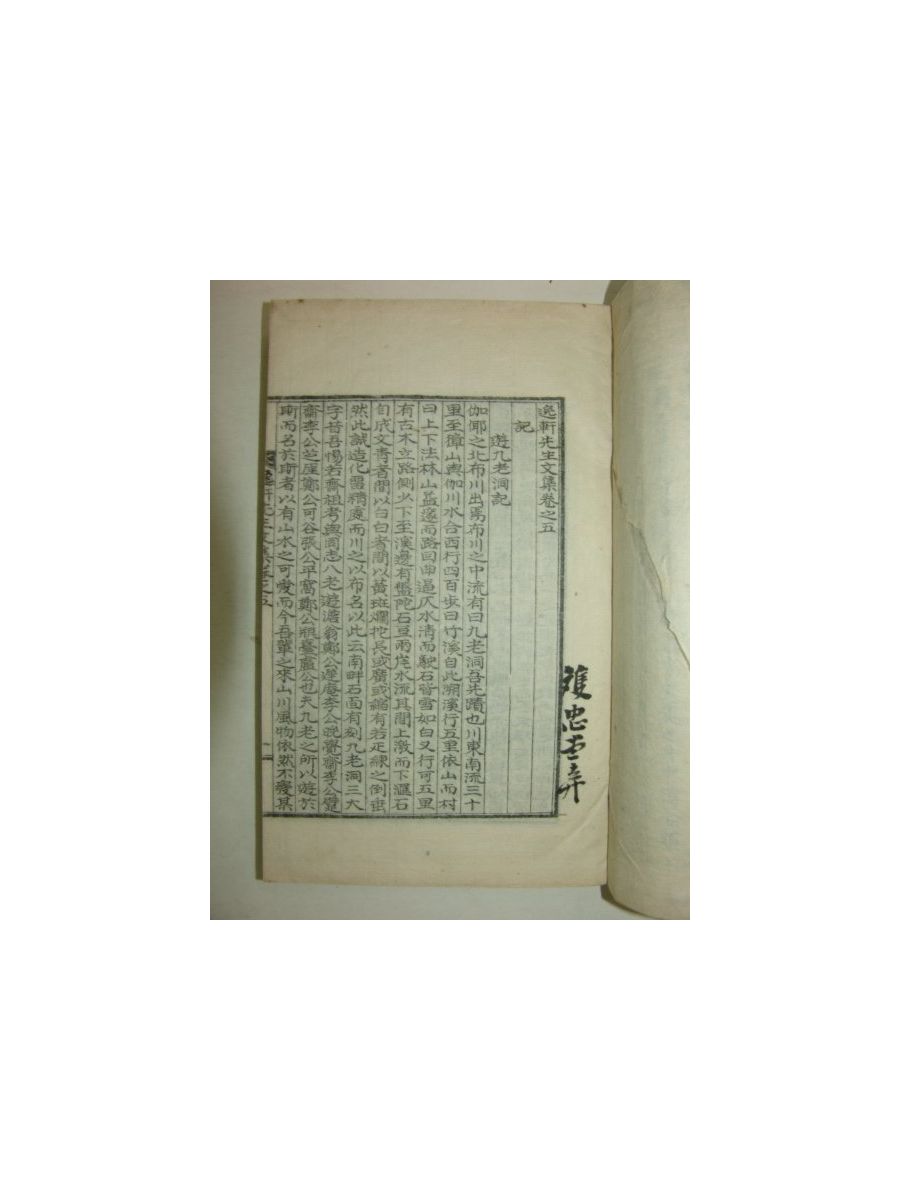 逸軒先生文集卷之五
記
遊九老洞記
伽倻之北布川出焉布川之中流有曰九老洞吾先蹟也川東南流三十
里至獐山與伽川水合西行四百步曰竹溪自此溯溪行五里依山而村
曰上下法林山益邃而路回曲逼仄水清而駛石皆雪如白又行可五里
有古木立路側少下至溪邊有盤陀石亘兩岸水流其間上激而下滙石
自成文青者間以白白者間以黃斑爛拕長或廣或縮有若疋練之倒垂
然此誠造化畱精處而川之以布名以此云南畔石面有刻九老洞三大
字昔吾惕若齋祖考與同志八老遊澹翁鄭公蓮庵李公晚覺齋李公躄
齋李公芝厓鄭公可谷張公平窩鄭公瓶臺盧公也夫九老之所以遊於
斯而名於斯者以有山水之可愛而今吾輩之來山川風物依然不變某